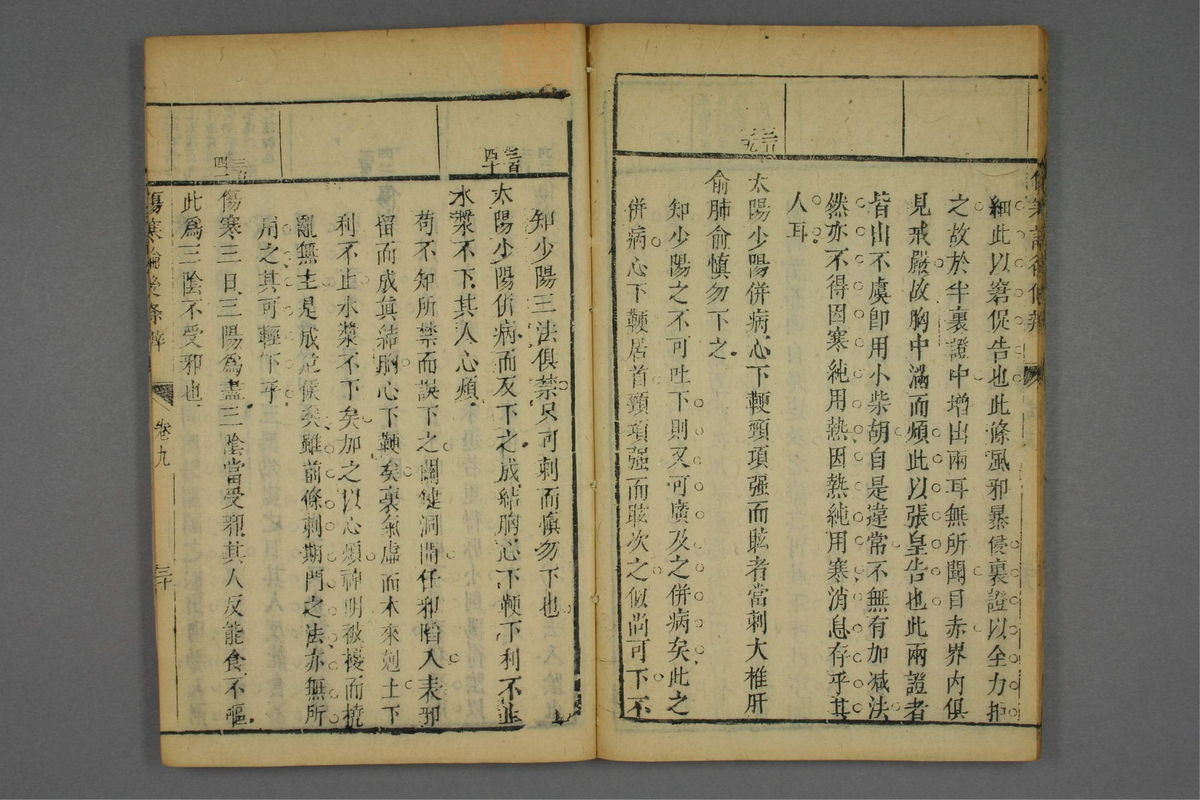 細此以窘促告也此條風邪暴侵裏證以全力拒
之故於半裏證中增出兩耳無所聞目赤界內俱
見戒嚴故胸中滿而煩此以張皇告也此兩證者
皆出不虞卽用小柴胡自是違常不無有加减法
然亦不得因寒純用熱因熱純用寒消息存乎其
人耳
太陽少陽併病心下鞕頸項强而眩者當刺大椎肝
俞肺俞慎勿下之
知少陽之不可吐下則又可廣及之併病矣此之
併病心下鞕居首頸項强而眩次之似尚可下不
知少陽三法俱禁只可刺而慎勿下也
三百四十
太陽少陽併病而反下之成結胸心下鞕下利不止
水漿不下其人心煩
苟不知所禁而誤下之關鍵洞開任邪陷入表邪
留而成眞結胸心下鞕矣裏氣虛而木來尅土下
利不止水漿不下矣加之以心煩神明被擾而橈
亂無主是成逆候矣雖前條刺期門之法亦無所
用之其可輕下乎
傷寒三日三陽爲盡三陰當受邪其人反能食不嘔
此爲三陰不受邪也
傷寒論後條辨
卷九
三十